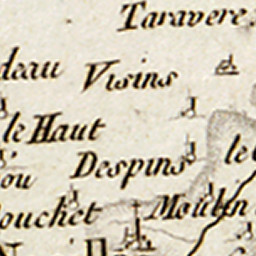 Taravere
deau Visins
le Haut
Despins le
ou
ouchet Moulin